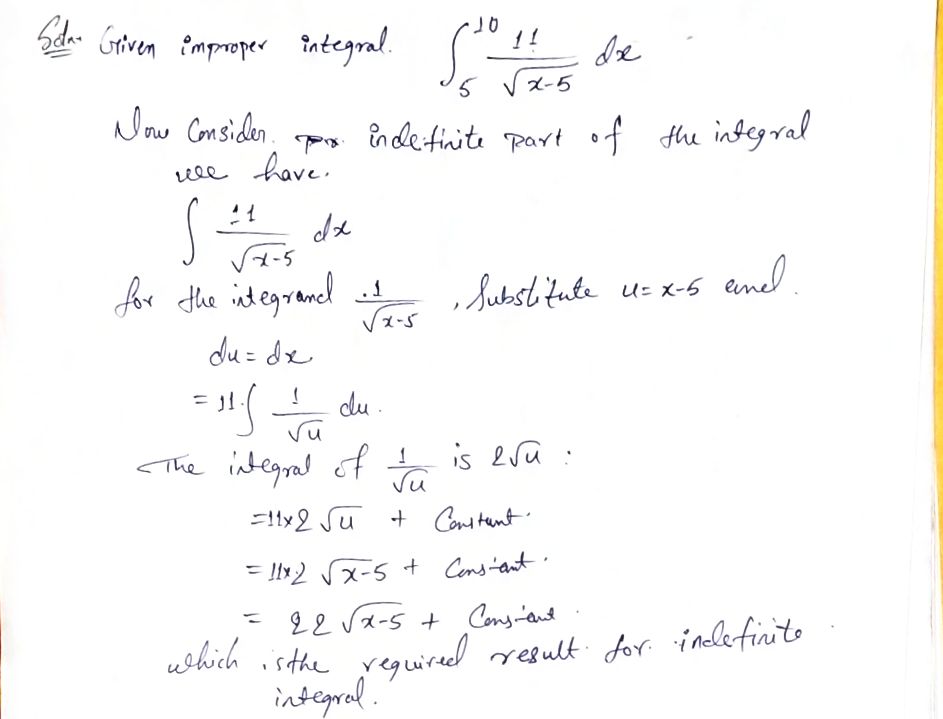 Soln. Given improper integral. ∫₅¹⁰ 11/√(x-5) dx
Now Consider indefinite part of the integral
we have.
∫ 11/√(x-5) dx
for the integrand 1/√(x-5) , Substitute u = x-5 and.
du = dx
= 11 ∫ 1/√u du.
The integral of 1/√u is 2√u :
= 11x2 √u + Constant.
= 11x2 √(x-5) + Constant.
= 22 √(x-5) + Constant.
which is the required result for indefinite
integral.